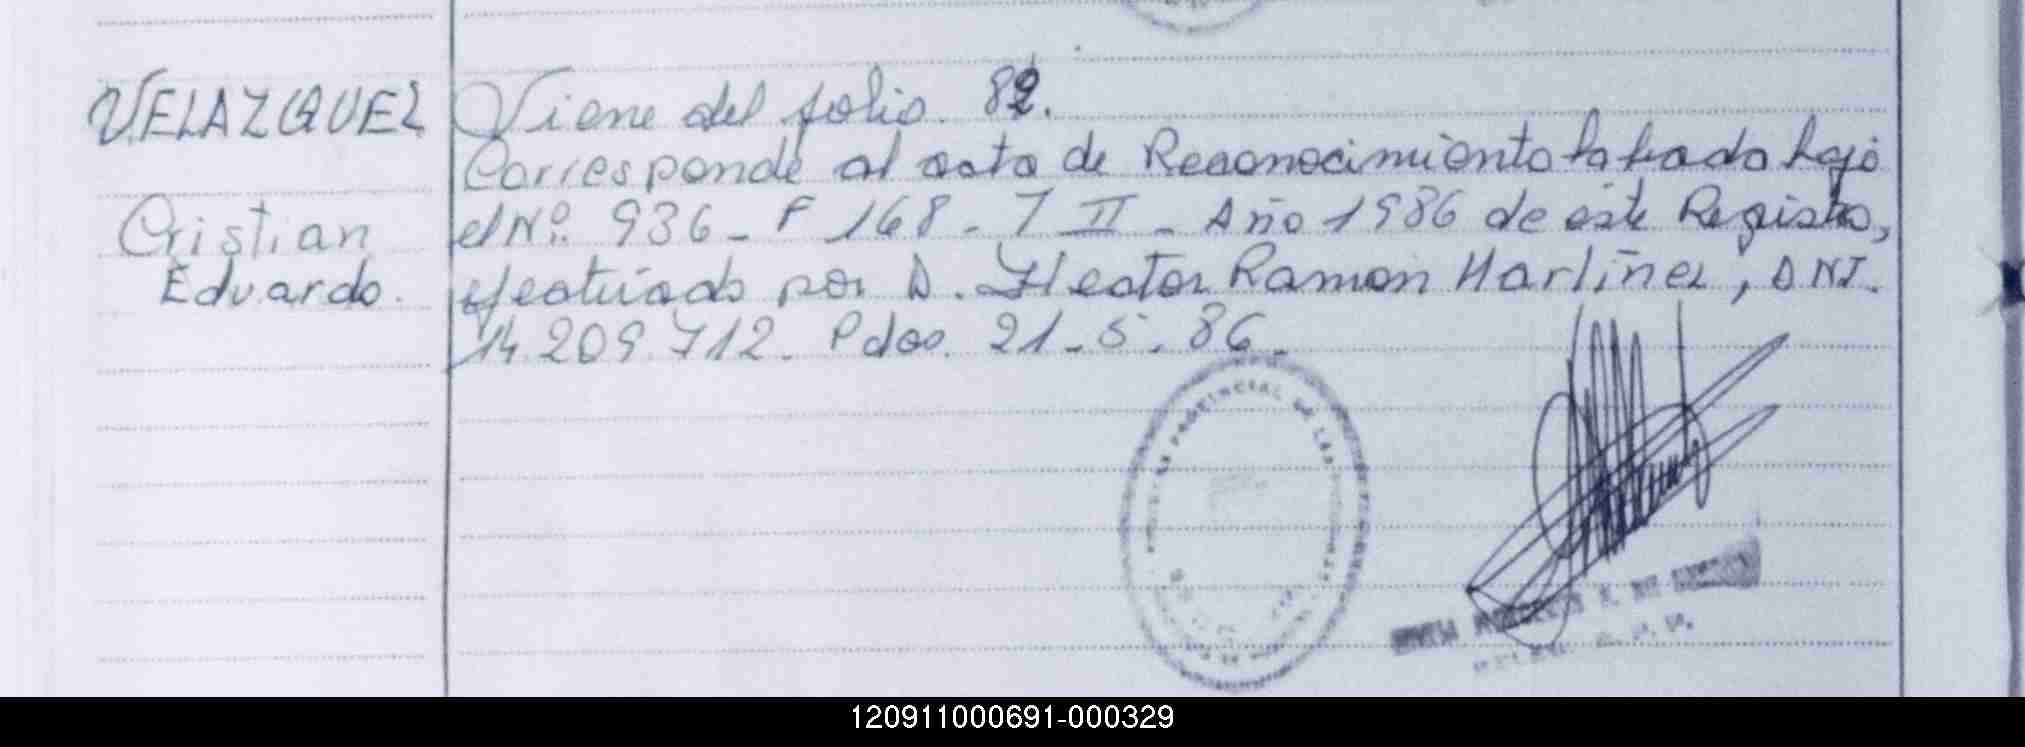 VELAZQUEZ
Cristian
Eduardo.
Viene del folio. 82.
Corresponde al acta de Reconocimiento labrada bajo
el Nº. 936 - F 168 - T II - Año 1986 de este Registro,
efectuado por D. Hector Ramon Martinez, DNI.
14.209.712. Pdas. 21-5-86-
PROVINCIAL DE LAS
120911000691-000329